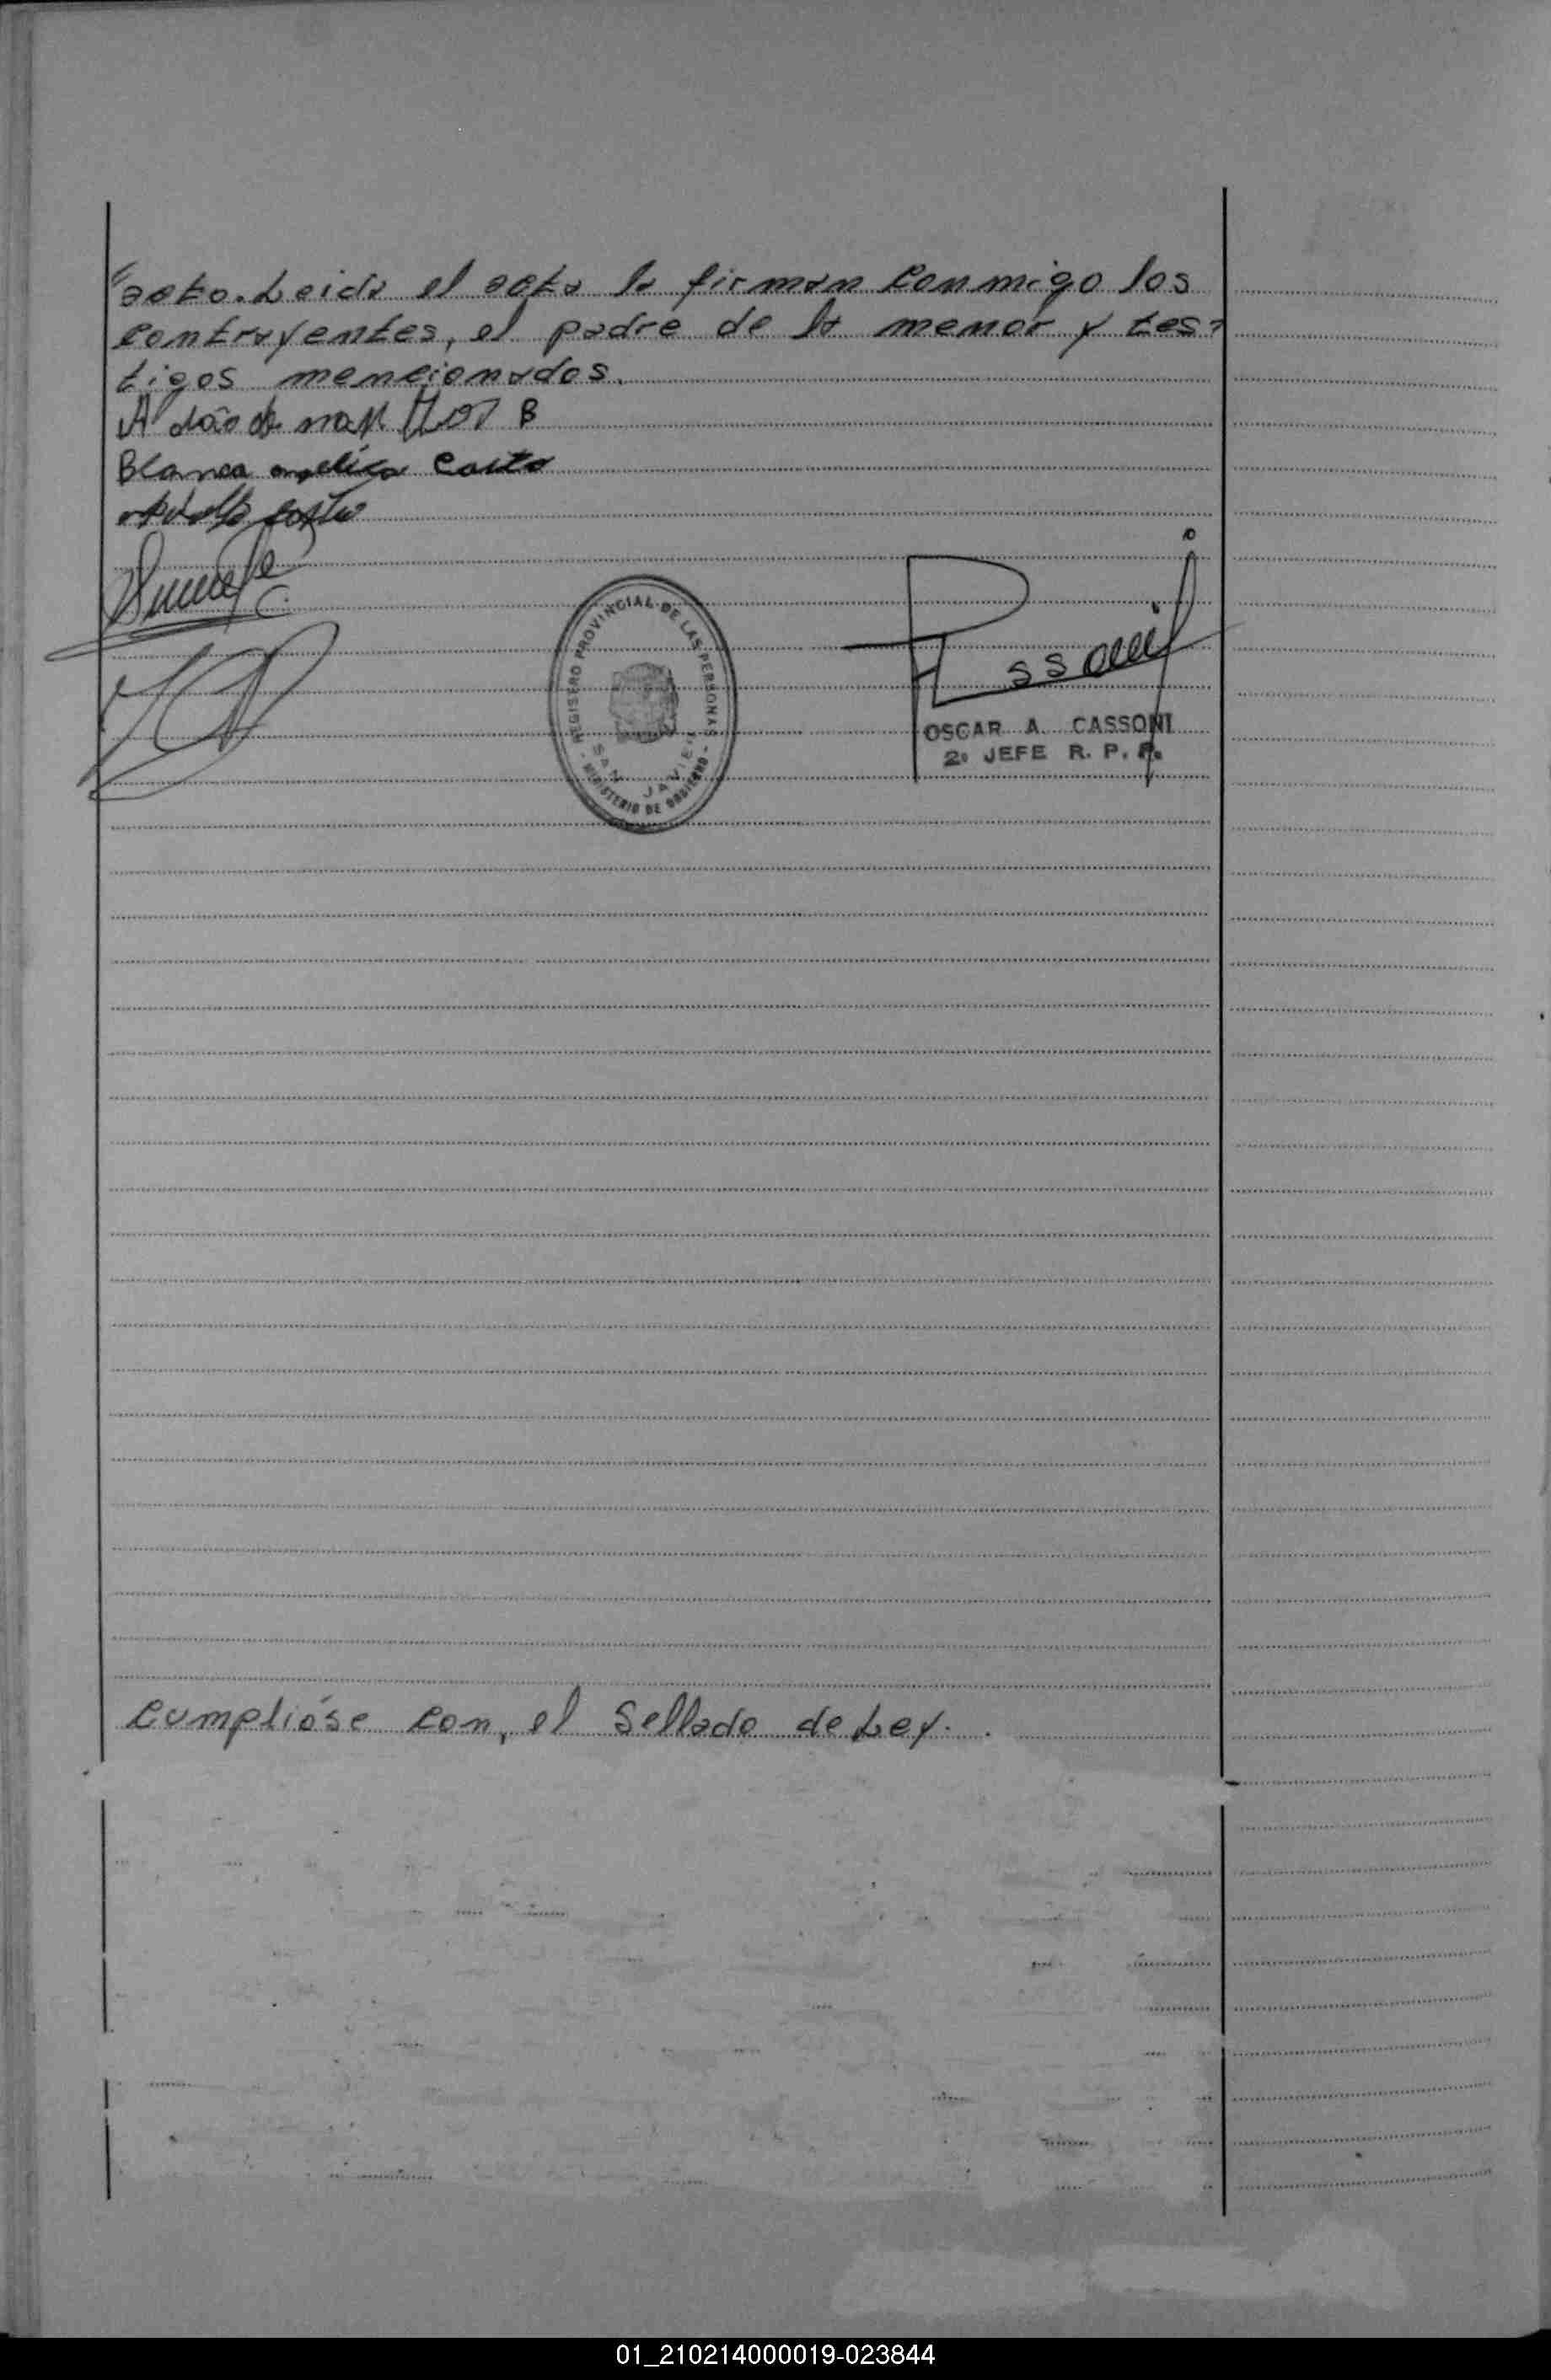 acto. Leida el acta la firman conmigo los
contrayentes, el padre de la menor y tes=
tigos mencionados.
Adão de
Blanca angelica Casto
REGISTRO PROVINCIAL DE LAS PERSONAS
SAN JAVIER
- MINISTERIO DE GOBIERNO -
OSCAR A. CASSONI
2º JEFE R. P. P.
Cumplióse con, el Sellado de Ley.
01_210214000019-023844